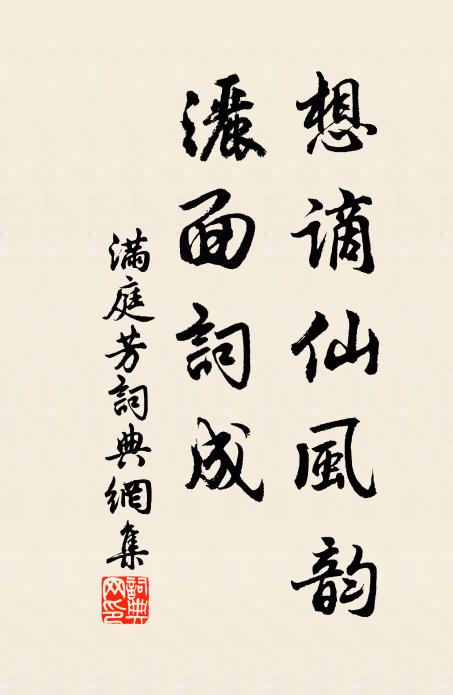 想謫仙風韵
灑面詞成
滿庭芳詞典網集
詞典网印